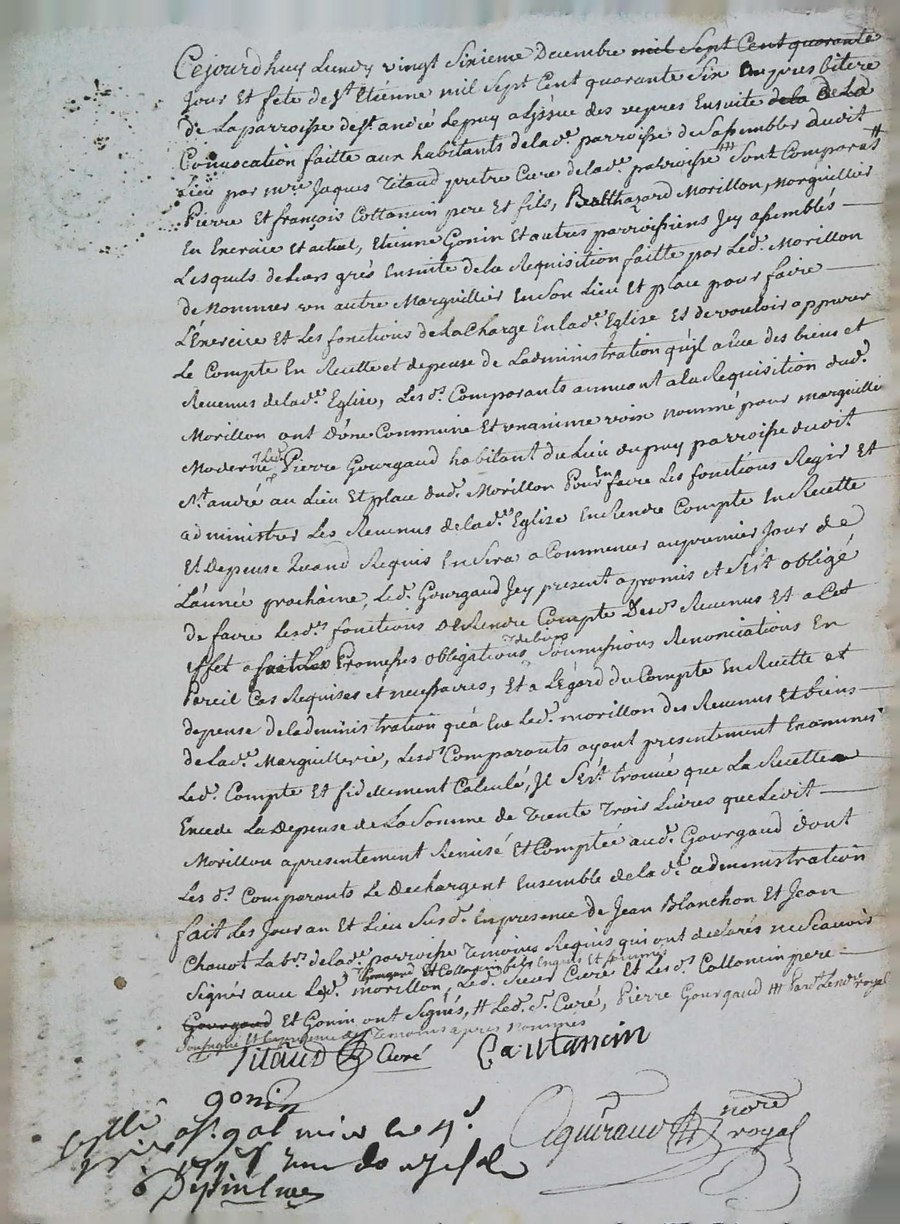 Cejourdhuy Lundy vingt Sixieme Decembre mil Sept Cent quarante
Jour Et fete de St Etienne mil Sept Cent quarante Six au presbitere
De La parroisse de St. andré Lepuy a Lissüe des vepres Ensuite dela De La
Convocation faitte aux habitants delade. parroisse de Sassembler audit
Lieu par mre. Jaques Titaud pretre Curé delade. parroisse ╫ Sont Comparus #
Pierre Et françois Cottancin pere Et fils, Balthazard Morillon, Marguillier
En Exercice Et actuel, Etienne Gonin Et autres parroissiens Jcy assemblés
Lesquels de Leurs grés Ensuite de la Requisition faitte par Led. Morillon
de Nommer un autre Marguillier En Son Lieu Et place pour faire
L'Exercice Et Les fonctions de La Charge En lade. Eglise Et de vouloir appurer
Le Compte En Recette et depense de Ladministration quil a Eue des biens et
Revenus delade. Eglise, Lesds. Comparants annuant a la Requisition dud.
Morillon ont D'une Commune Et unanime voix nommé pour marguillier
Moderne Led. Pierre Gourgaud habitant du Lieu du puy parroisse dudit
St. andré au Lieu Et place dud. Morillon Pour En faire Les fonctions Regir Et
administrer Les Revenus delade. Eglise En Rendre Compte En Recette
Et Depense Quand Requis En Sera a Commencer au premier Jour de
L'année prochaine, Led. Gourgaud Jcy present a promis et S'est obligé
de faire Lesds. fonctions de Rendre Compte Desds. Revenus Et a Cet
Effet a fait Les Promesses obligations de biens Soumissions Renonciations En
Pareil Cas Requises et necessaires, Et a L'Egard du Compte En Recette et
depense de Ladministration qu'a Eue Led. morillon des Revenus Et biens
delade. Marguillerie, Lesds. Comparants ayant presentement Examiné
Led. Compte Et fidellement Calculé, Jl S'est trouvé que La Recette
Excede La Depense de La Somme de Trente Trois Livres que Ledit
Morillon a presentement Remisé Et Comptée aud. Gourgaud dont
Les ds. Comparants Le Dechargent Ensemble de lade. administration
fait Les Jour an Et Lieu Susd. En presence de Jean Blanchon Et Jean
Chavot Labrs. delade. parroisse Temoins Requis qui ont declarés ne Scavoir
Signer avec Led. Gourgaud Et Cottancin fils Enquis Et Sommés
morillon, Led. Sieur Curé Et Lesds. Cottancin pere
Gourgaud Et Gonin ont Signés, # Led. Sr. Curé, Pierre Gourgaud ╫ Pardt. Le nore royal
Soussigné Et En presence des Temoins apres nommés
Titaud Curé
Cauttancin
gonin
Aguiraud nore royal